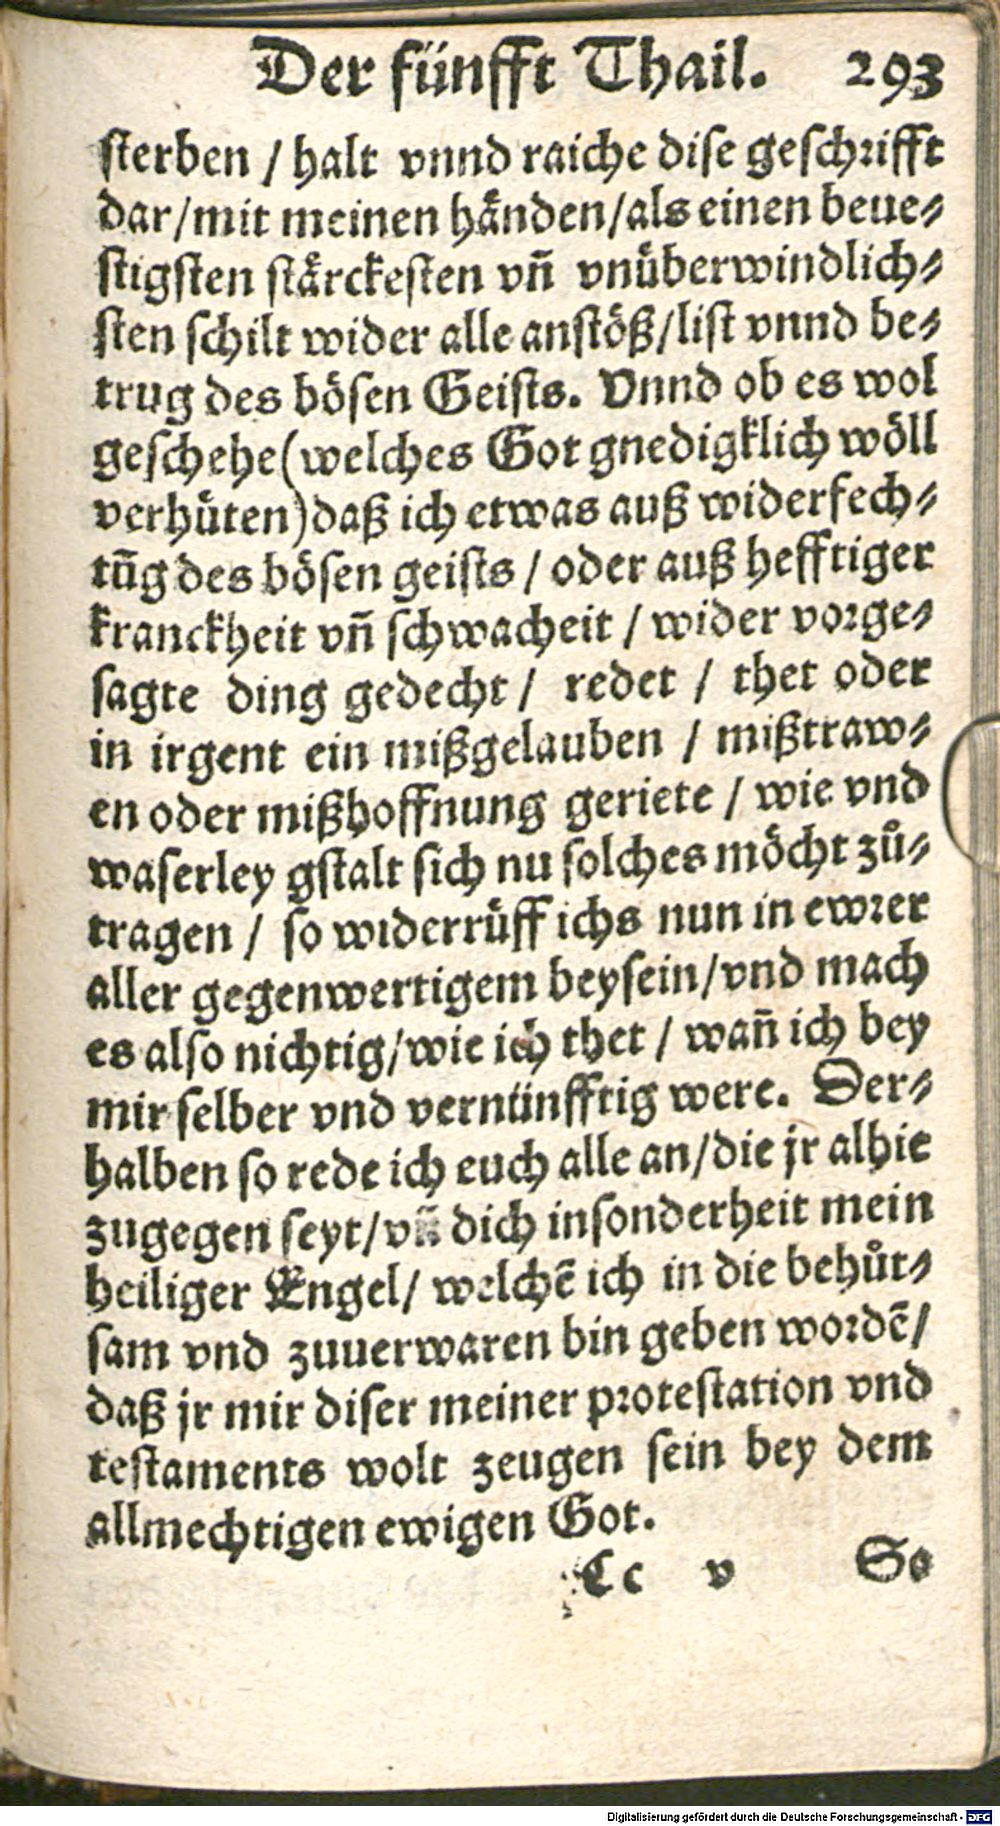 Der fünfft Thail. 293
ſterben / halt vnnd raiche diſe geſchrifft
dar/mit meinen hånden/als einen beue⸗
ſtigſten ſtårckeſten vñ vnüberwindlich⸗
ſten ſchilt wider alle anſtöß/liſt vnnd be⸗
trug des böſen Geiſts. Vnnd ob es wol
geſchehe(welches Got gnedigklich wöll
verhüten)daß ich etwas auß widerfech⸗
tūg des böſen geiſts / oder auß hefftiger
kranckheit vñ ſchwacheit / wider vorge⸗
ſagte ding gedecht / redet / thet oder
in irgent ein mißgelauben / mißtraw⸗
en oder mißhoffnung geriete / wie vnd
waſerley gſtalt ſich nu ſolches möcht zů⸗
tragen / ſo widerrüff ichs nun in ewrer
aller gegenwertigem beyſein/vnd mach
es alſo nichtig/wie ich thet / wañ ich bey
mir ſelber vnd vernünfftig were. Der⸗
halben ſo rede ich euch alle an/die jr alhie
zugegen ſeyt/vñ dich inſonderheit mein
heiliger Engel/ welchē ich in die behůt⸗
ſam vnd zuuerwaren bin geben wordē/
daß jr mir diſer meiner proteſtation vnd
teſtaments wolt zeugen ſein bey dem
allmechtigen ewigen Got.
Cc v So
Digitalisierung gefördert durch die Deutsche Forschungsgemeinschaft - DFG